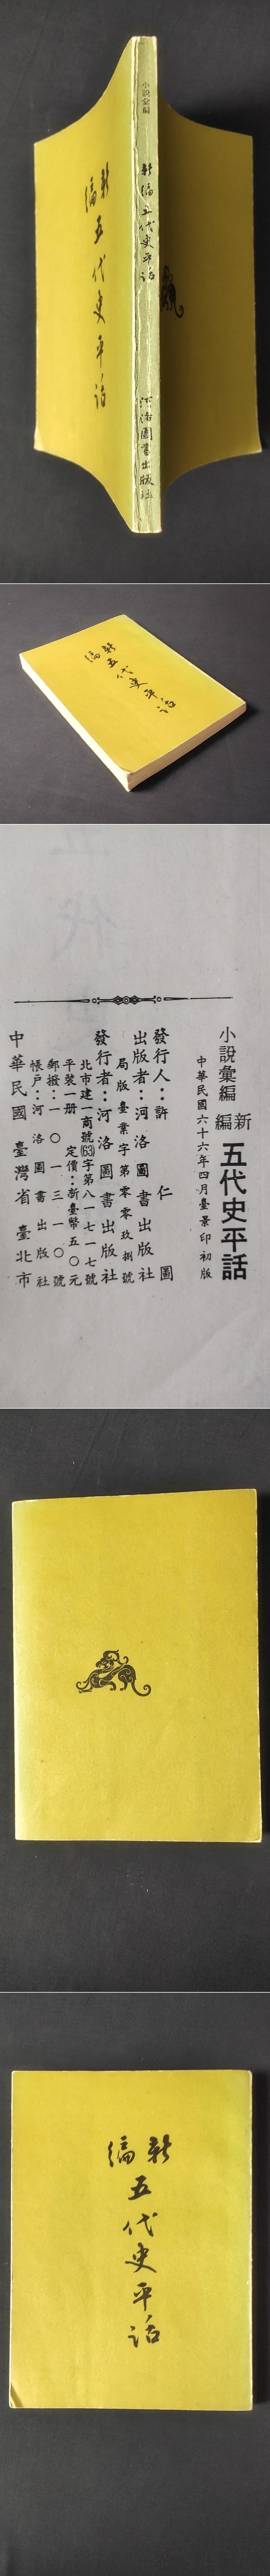 小說彙編
新編五代史平話
河洛圖書出版社
新編五代史平話
新編五代史平話
小說彙編
新編 五代史平話
中華民國六十六年四月臺景印初版
發行人：許仁圖
出版者：河洛圖書出版社
局版臺業字第零零玖捌號
發行者：河洛圖書出版社
北市建一商號(63)字第八一七一七號
平裝一册 定價：新臺幣五〇元
郵撥：一〇一三一〇號
帳戶：河洛圖書出版社
中華民國 臺灣省 臺北市
新編五代史平話